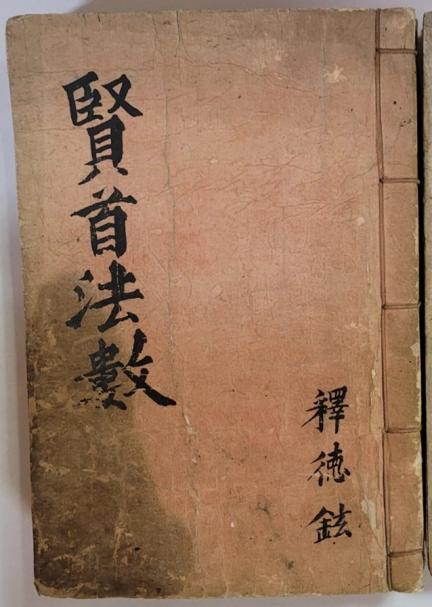 賢首法數
釋德鉉